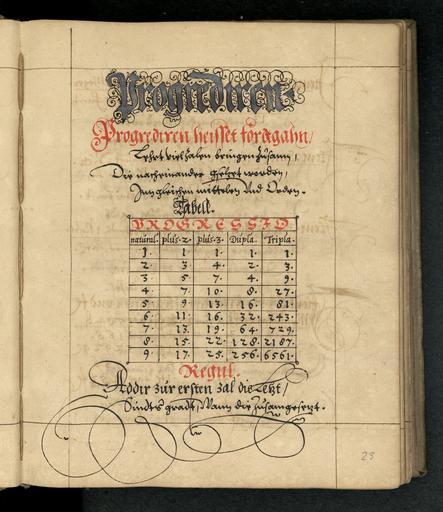 Progrediren
Progrediren heisset fordtgahn /
Lehrt viel zalen bringen zusamn /
Die nacheinander gesetzt werden /
Inn gleichen mittelen und Orden.
Tabell.
PROGRESSIO
natural. plus. 2. plus. 3. Dupla. Tripla.
1. 1. 1. 1. 1.
2. 3. 4. 2. 3.
3. 5. 7. 4. 9.
4. 7. 10. 8. 27.
5. 9. 13. 16. 81.
6. 11. 16. 32. 243.
7. 13. 19. 64. 729.
8. 15. 22. 128. 2187.
9. 17. 25. 256. 6561.
Regul.
Addir zur ersten zal die letzt /
Sindts gradt, Wann die zusamgesetzt.
23